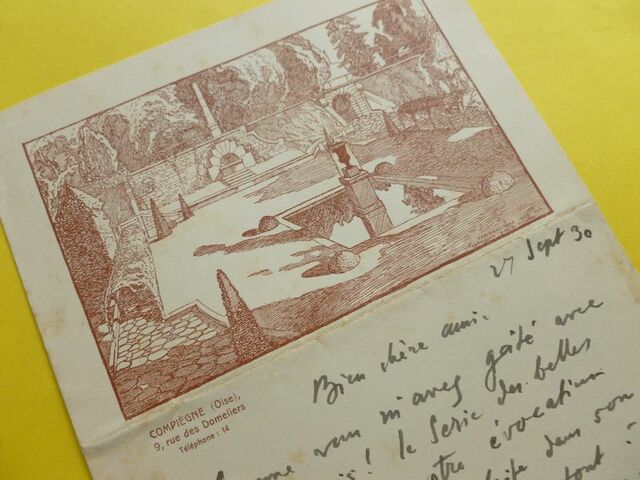 COMPIÈGNE (Oise),
9, rue des Domeliers
Téléphone : 14
27 Sept 30
Bien chère amie -
vous m'avez gâté avec
! la Série des belles
votre évocation
dans son
tout :